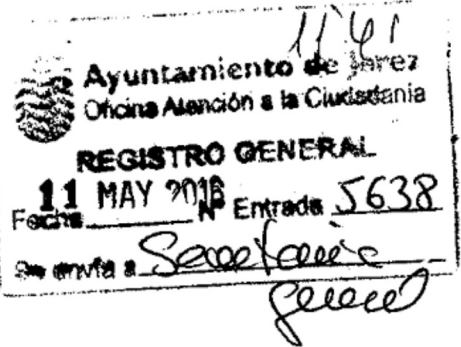 11'41
Ayuntamiento de Jerez
Oficina Atención a la Ciudadanía
REGISTRO GENERAL
11 MAY 2016
Fecha Nº Entrada 5638
Se envía a Secretaría
General